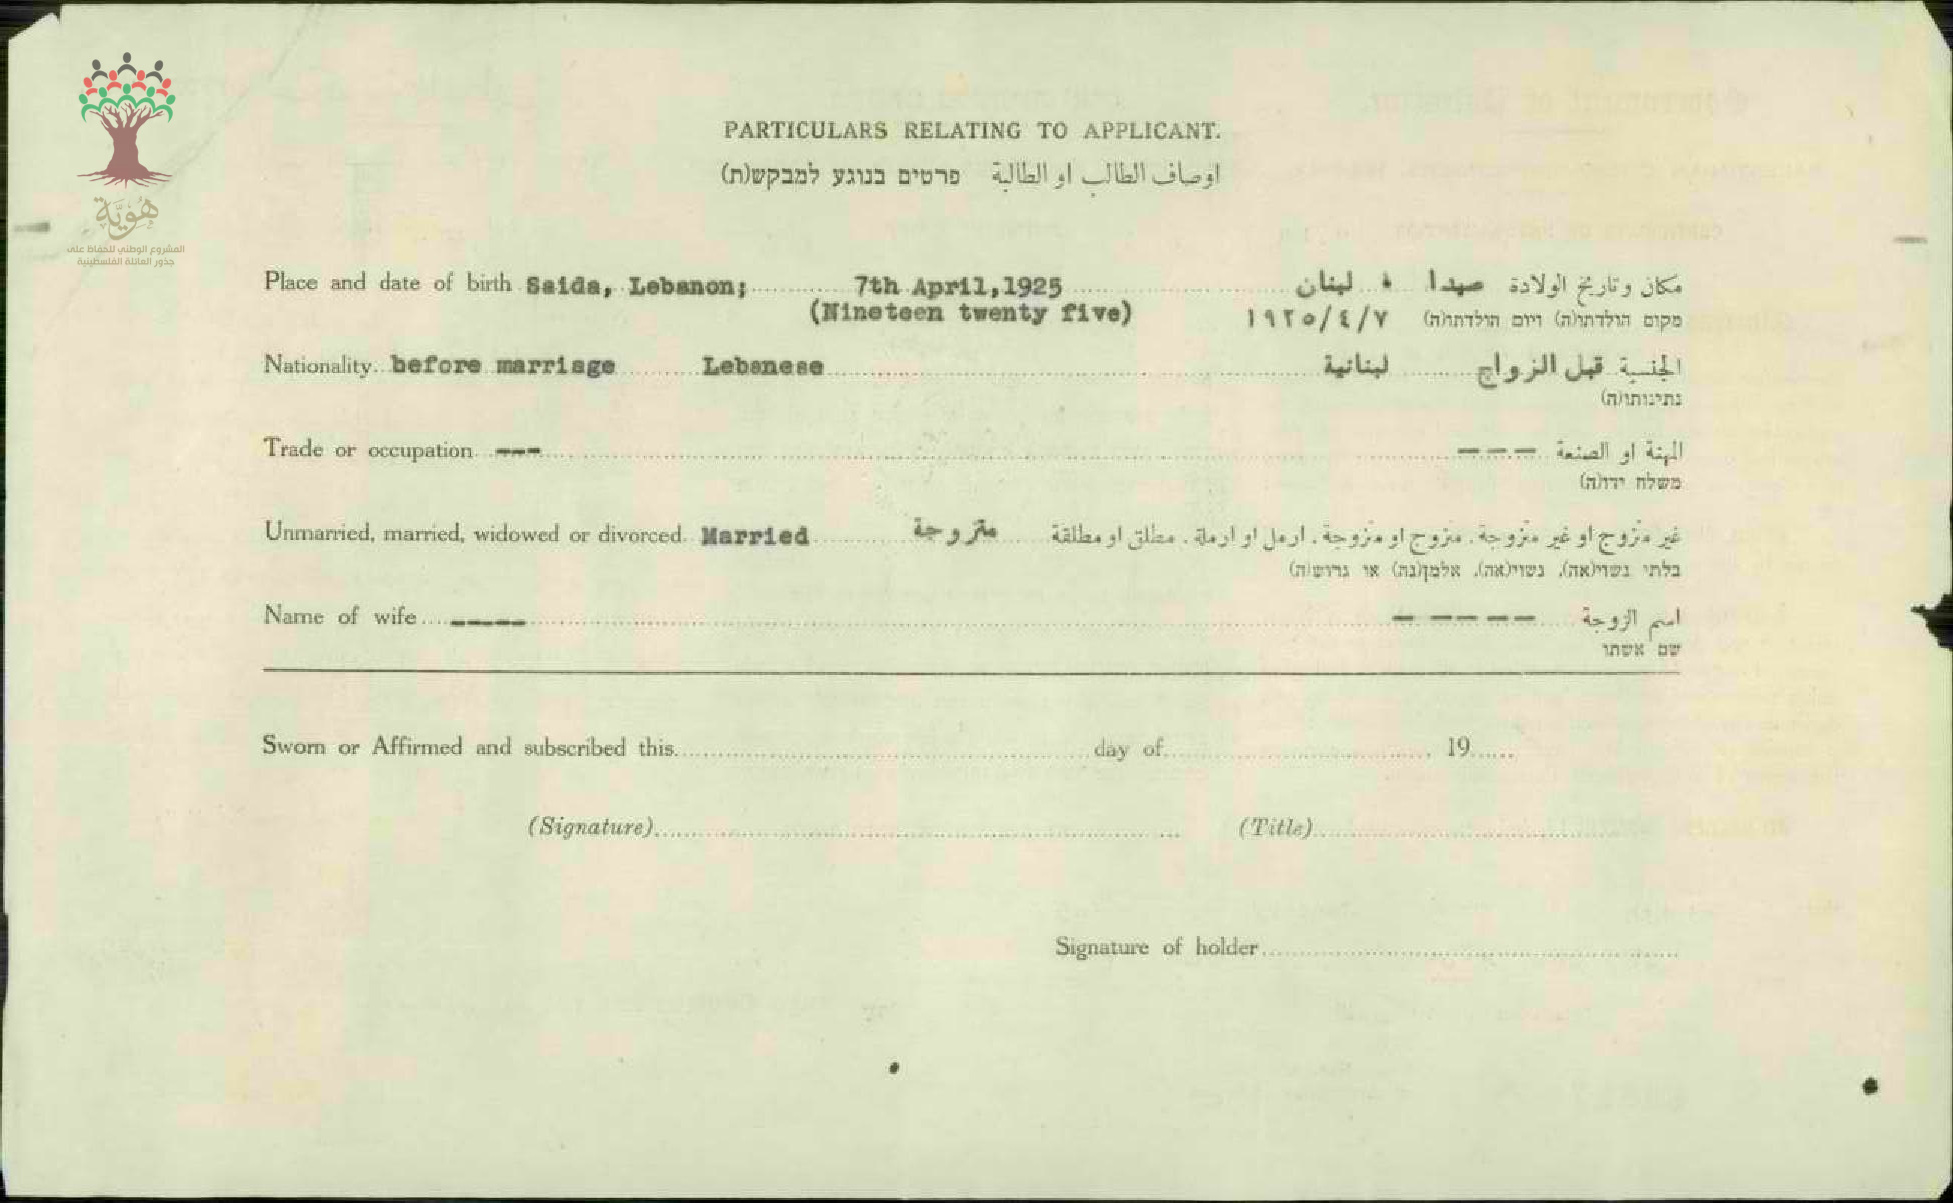 هُوِيَّة
المشروع الوطني للحفاظ على
جذور العائلة الفلسطينية
PARTICULARS RELATING TO APPLICANT.
اوصاف الطالب او الطالبة פרטים בנוגע למבקש(ת)
Place and date of birth Saida, Lebanon; 7th April,1925 مكان وتاريخ الولادة صيدا ، لبنان
(Nineteen twenty five) מקום הולדתו(ה) ויום הולדתו(ה) ١٩٢٥/٤/٧
Nationality before marriage Lebanese الجنسية قبل الزواج لبنانية
נתינותו(ה)
Trade or occupation --- المهنة او الصنعة ---
משלח ידו(ה)
Unmarried, married, widowed or divorced Married متزوجة غير متزوج او غير متزوجة. متزوج او متزوجة. ارمل او ارملة. مطلق او مطلقة
בלתי נשוי(אה), נשוי(אה), אלמן(נה) או גרוש(ה)
Name of wife ----- اسم الزوجة -----
שם אשתו
Sworn or Affirmed and subscribed this day of 19
(Signature) (Title)
Signature of holder